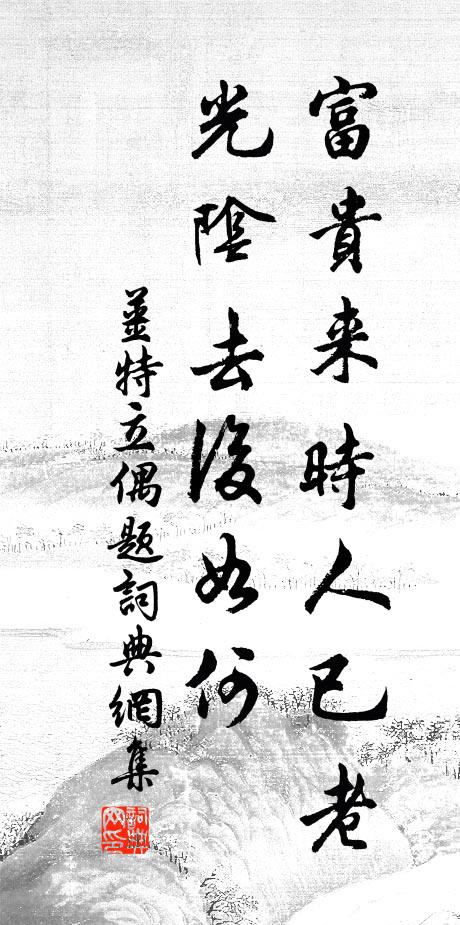 富貴来時人已老
光陰去後如何
姜特立偶題詞典網集